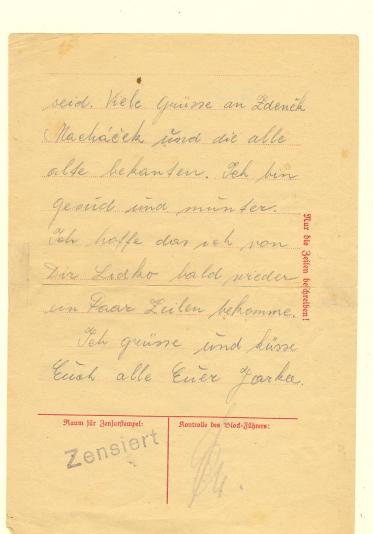 seid. Viele Grüsse an Zdeněk
Macháček und die alle
alte bekanten. Ich bin
gesud und munter.
Ich hoffe das ich von
Dir Lidko bald wieder
ein Paar Zeilen bekomme.
Ich grüsse und küsse
Euch alle Euer Jarka.
Nur die Zeilen beschreiben!
Raum für Zensorstempel:
Kontrolle des Block-Führers:
Zensiert